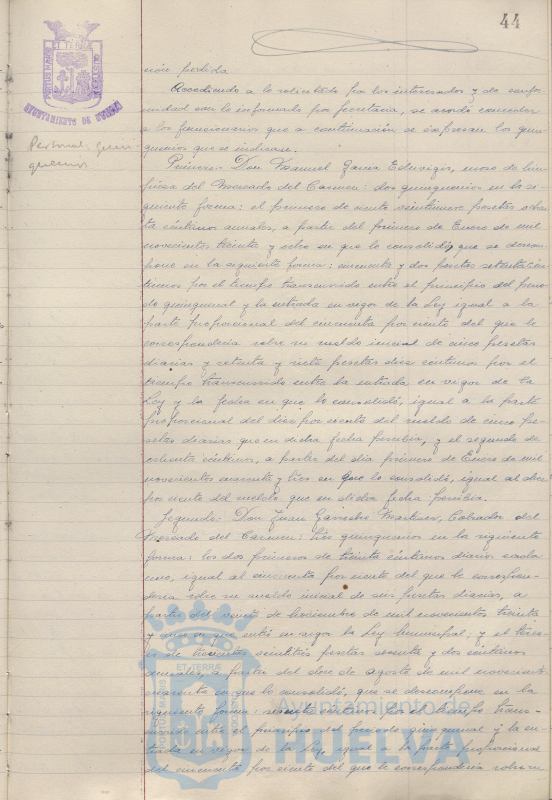 44
ción perdida
Accediendo a lo solicitado por los interesados y de confor-
midad con lo informado por Secretaría, se acordó conceder
a los funcionarios que a continuación se expresan los quin-
quenios que se indican.
Personal quin-
quenios
Primero: Don Manuel García Eduvigis, mozo de lim-
pieza del Mercado del Carmen: dos quinquenios en la si-
guiente forma: el primero de ciento veintinueve pesetas ochen-
ta céntimos anuales, a partir del primero de Enero de mil
novecientos treinta y ocho en que lo consolidó, que se descom-
pone en la siguiente forma: cincuenta y dos pesetas setenta cén-
timos por el tiempo transcurrido entre el principio del perio-
do quinquenal y la entrada en vigor de la Ley igual a la
parte proporcional del cincuenta por ciento del que le
correspondería sobre su sueldo inicial de cinco pesetas
diarias y setenta y siete pesetas diez céntimos por el
tiempo transcurrido entre la entrada en vigor de la
Ley y la fecha en que lo consolidó, igual a la parte
proporcional del diez por ciento del sueldo de cinco pe-
setas diarias que en dicha fecha percibía, y el segundo de
céntimos, a partir del día primero de Enero de mil
novecientos cuarenta y tres en que lo consolidó, igual al diez
por ciento del sueldo que en dicha fecha percibía.
Segundo: Don Juan Martínez, Cobrador del
Mercado del Carmen: tres quinquenios en la siguiente
forma: los dos primeros de treinta céntimos diarios cada
uno, igual al cincuenta por ciento del que le correspon-
dería sobre su sueldo inicial de seis pesetas diarias, a
partir del de Noviembre de mil novecientos treinta
y en que entró en vigor la Ley Municipal; y el terce-
ro de veintitrés pesetas sesenta y dos céntimos
anuales, a partir del doce de agosto de mil novecientos
cuarenta en que lo consolidó, que se descompone en la
siguiente forma: céntimos por el tiempo trans-
currido entre el principio del periodo quinquenal y la en-
trada en vigor de la Ley, igual a la parte proporcional
del cincuenta por ciento del que le correspondería sobre su
PORTUS MARIS ET TERRÆ CUSTODIA
AYUNTAMIENTO DE HUELVA
Ayuntamiento de
HUELVA